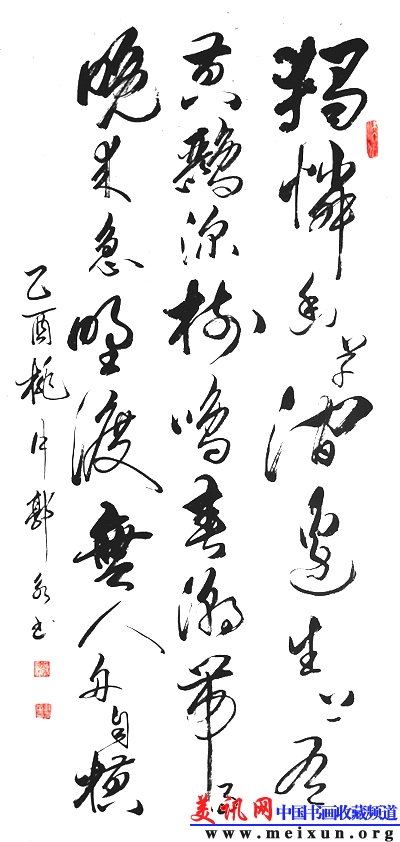 獨憐幽草澗邊生上有
黃鸝深樹鳴春潮帶雨
晚来急野渡無人舟自横
乙酉桃月郭书
美讯网 中国书画收藏频道
www.meixun.org